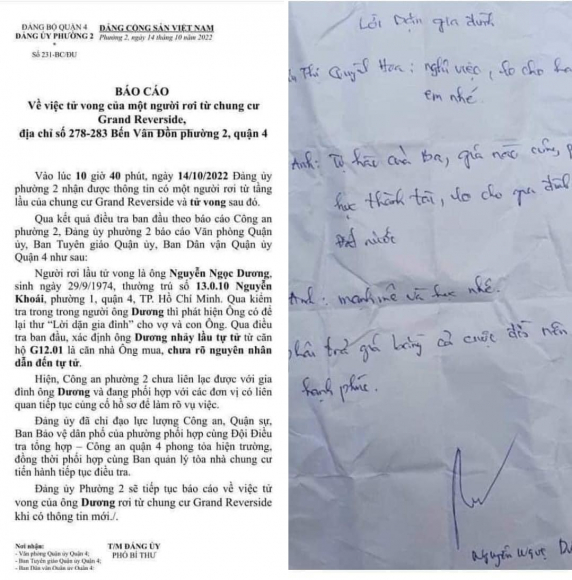 ĐẢNG BỘ QUẬN 4
ĐẢNG ỦY PHƯỜNG 2
Số 231-BC/ĐU
ĐẢNG CỘNG SẢN VIỆT NAM
Phường 2, ngày 14 tháng 10 năm 2022
BÁO CÁO
Về việc tử vong của một người rơi từ chung cư
Grand Reverside,
địa chỉ số 278-283 Bến Vân Đồn phường 2, quận 4
Vào lúc 10 giờ 40 phút, ngày 14/10/2022 Đảng ủy
phường 2 nhận được thông tin có một người rơi từ tầng
lầu của chung cư Grand Reverside và tử vong sau đó.
Qua kết quả điều tra ban đầu theo báo cáo Công an
phường 2, Đảng ủy phường 2 báo cáo Văn phòng Quận
ủy, Ban Tuyên giáo Quận ủy, Ban Dân vận Quận ủy
Quận 4 như sau:
Người rơi lầu tử vong là ông Nguyễn Ngọc Dương,
sinh ngày 29/9/1974, thường trú số 13.0.10 Nguyễn
Khoái, phường 1, quận 4, TP. Hồ Chí Minh. Qua kiểm
tra trong trong người ông Dương thì phát hiện Ông có để
lại thư "Lời dặn gia đình" cho vợ và con Ông. Qua điều
tra ban đầu, xác định ông Dương nhảy lầu tự tử từ căn
hộ G12.01 là căn nhà Ông mua, chưa rõ nguyên nhân
dẫn đến tự tử.
Hiện, Công an phường 2 chưa liên lạc được với gia
đình ông Dương và đang phối hợp với các đơn vị có liên
quan tiếp tục củng cố hồ sơ để làm rõ vụ việc.
Đảng ủy đã chỉ đạo lực lượng Công an, Quân sự,
Ban Bảo vệ dân phố của phường phối hợp cùng Đội Điều
tra tổng hợp – Công an quận 4 phong tỏa hiện trường,
đồng thời phối hợp cùng Ban quản lý tòa nhà chung cư
tiến hành tiếp tục điều tra.
Đảng ủy Phường 2 sẽ tiếp tục báo cáo về việc tử
vong của ông Dương rơi từ chung cư Grand Reverside
khi có thông tin mới./.
Nơi nhận:
- Văn phòng Quận ủy Quận 4;
- Ban Tuyên giáo Quận ủy Quận 4;
- Ban Dân vận Quận ủy Quận 4;
T/M ĐẢNG ỦY
PHÓ BÍ THƯ
Lời dặn gia đình
Thị Quỳnh Hoa: nghỉ việc, lo cho
em nhé.
Anh: Tự hào của Ba,
học thành tài, lo cho gia đình
Đất nước
Anh: mạnh mẽ và học nhé.
phải trả giá bằng cả cuộc đời nên
hạnh phúc.
Nguyễn Ngọc